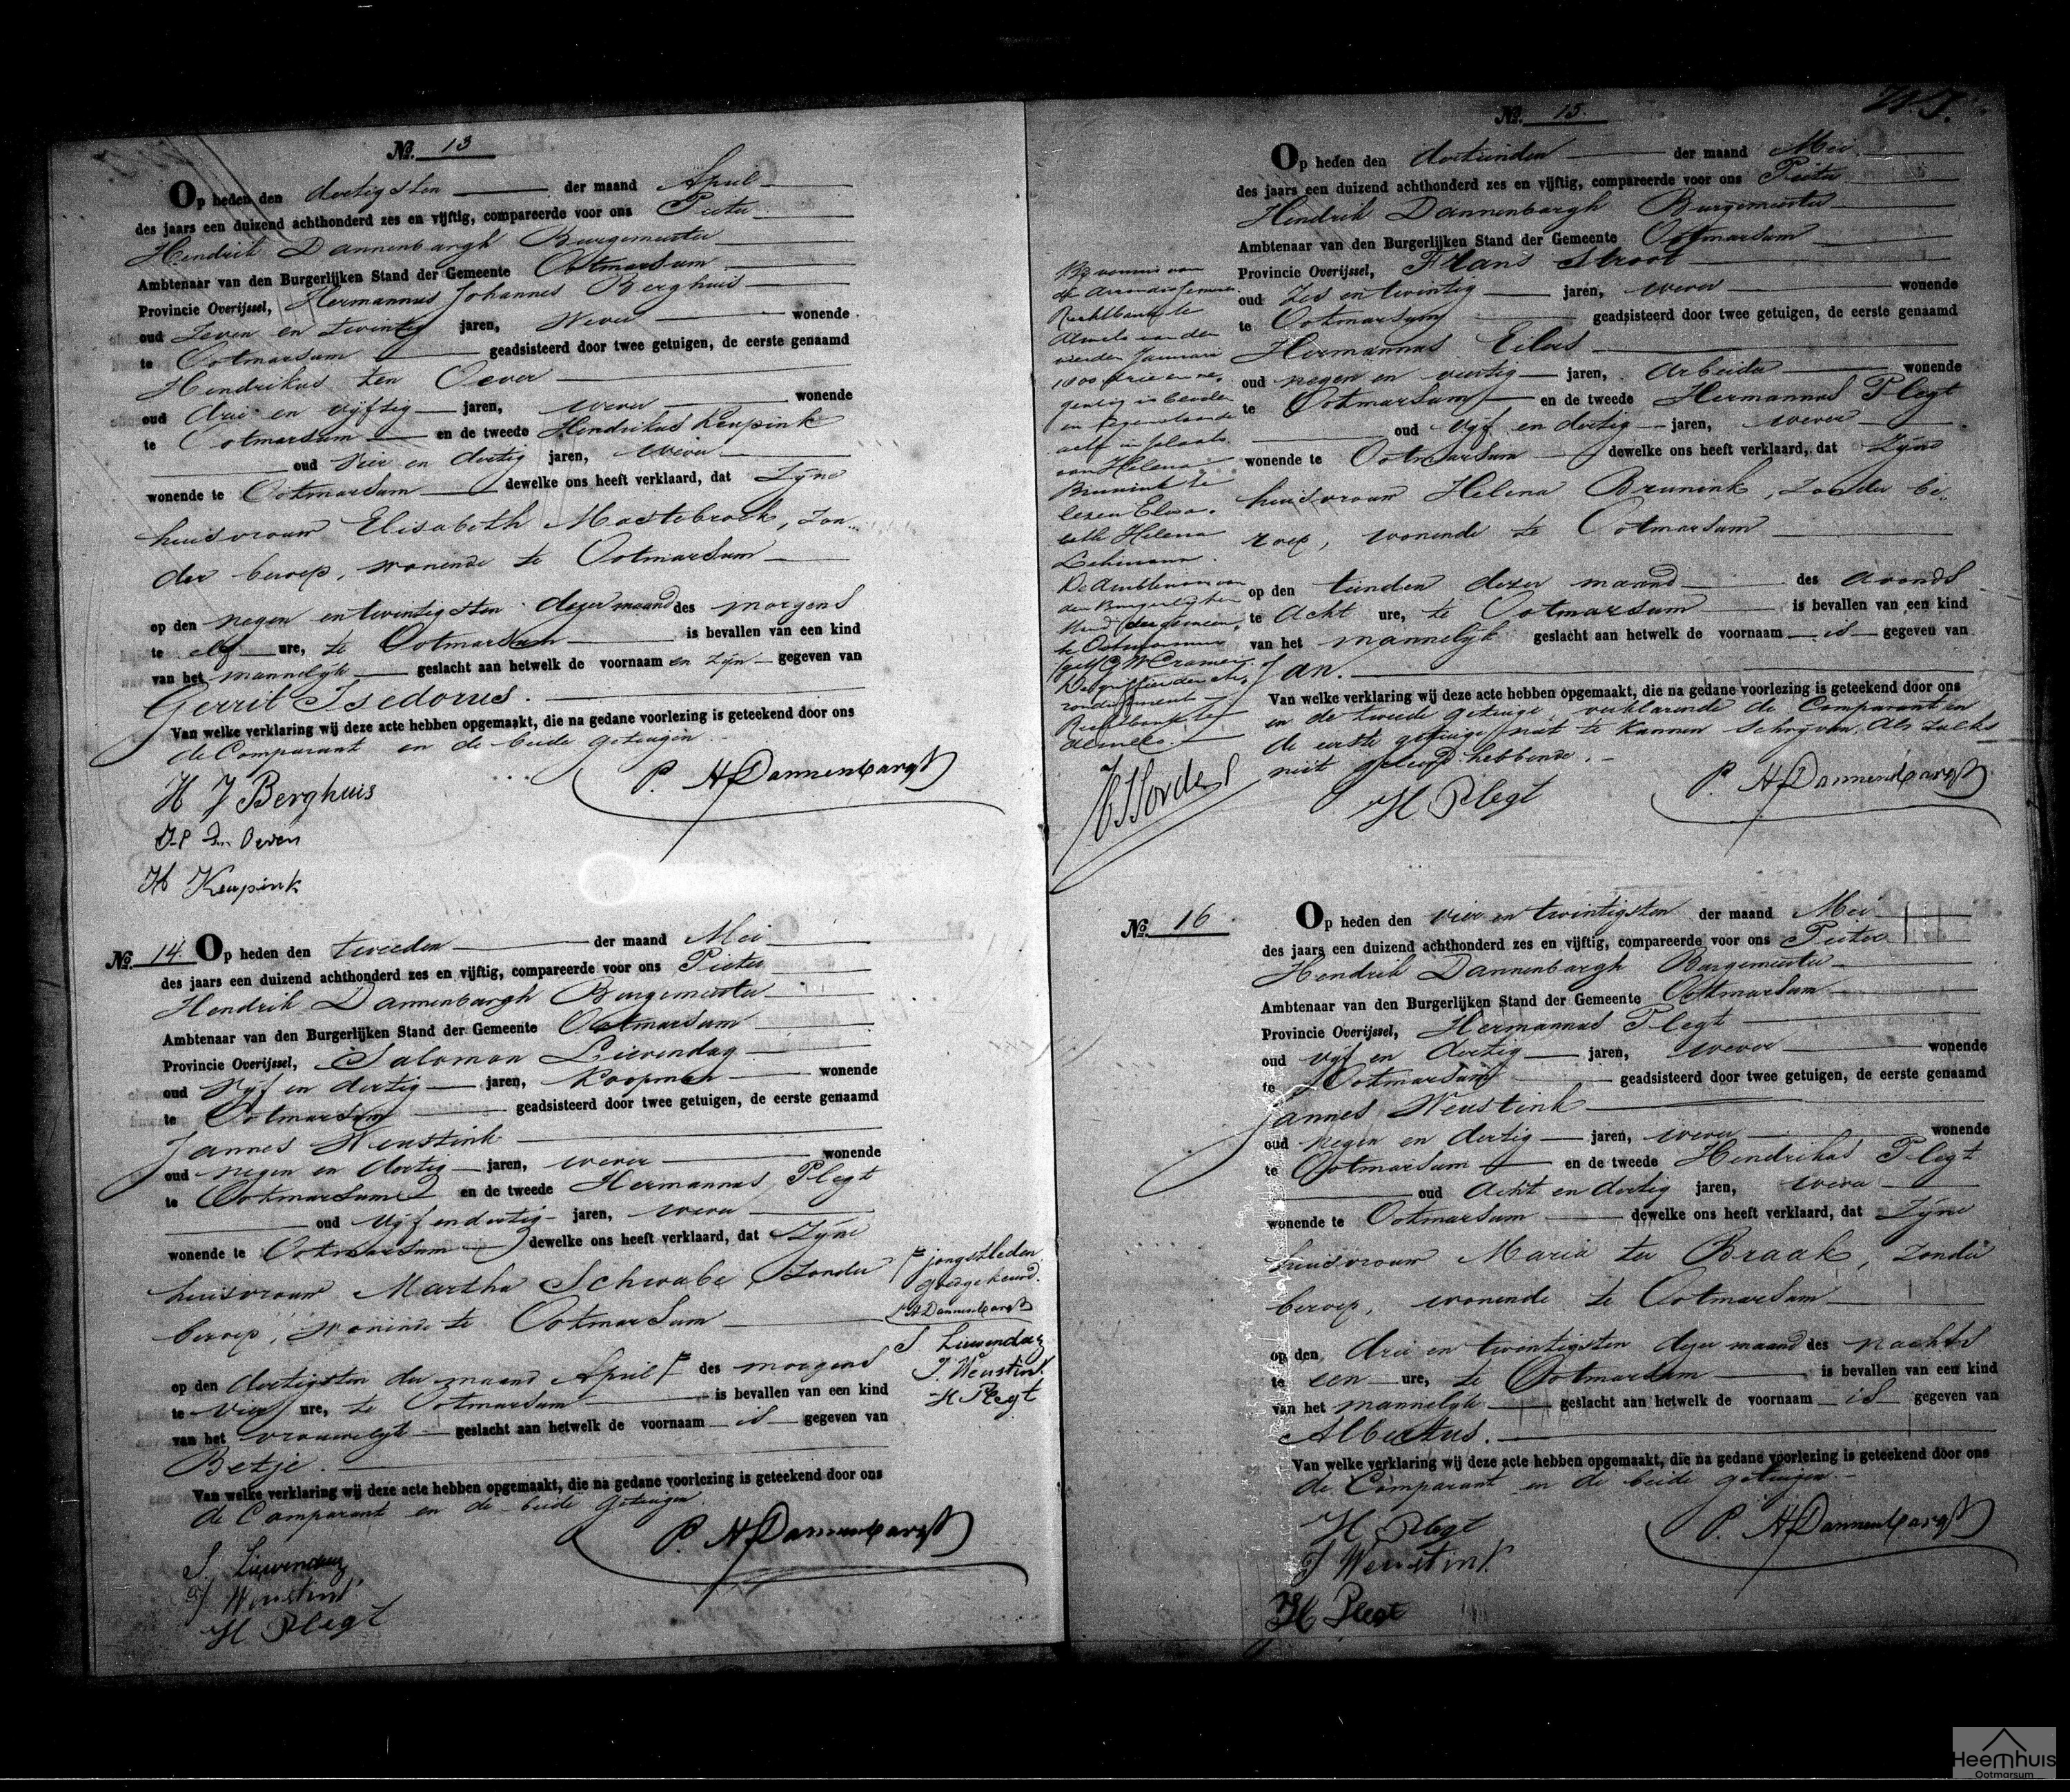 No. 13
Op heden den dertigsten der maand April
des jaars een duizend achthonderd zes en vijftig, compareerde voor ons Pieter
Hendrik Dannenbargh Burgemeester
Ambtenaar van den Burgerlijken Stand der Gemeente Ootmarsum
Provincie Overijssel, Hermannus Johannes Berghuis
oud Zeven en twintig jaren, Wever wonende
te Ootmarsum geadsisteerd door twee getuigen, de eerste genaamd
Hendrikus ten Oever
oud drie en vyftig jaren, wever wonende
te Ootmarsum en de tweede Hendrikus Keupink
oud vier en dertig jaren, Wever
wonende te Ootmarsum dewelke ons heeft verklaard, dat Zyne
huisvrouw Elisabeth Mastebroek, zon-
der beroep, wonende te Ootmarsum
op den negen en twintigsten dezer maand des morgens
te elf ure, te Ootmarsum is bevallen van een kind
van het mannelyk geslacht aan hetwelk de voornaam en zyn gegeven van
Gerrit Isedorus.
Van welke verklaring wij deze acte hebben opgemaakt, die na gedane voorlezing is geteekend door ons
de Comparant en de beide getuigen
P. H Dannenbargh
H J Berghuis
H ten Oever
H Keupink
No. 14.
Op heden den tweeden der maand Mei
des jaars een duizend achthonderd zes en vijftig, compareerde voor ons Pieter
Hendrik Dannenbargh Burgemeester
Ambtenaar van den Burgerlijken Stand der Gemeente Ootmarsum
Provincie Overijssel, Salomon Lievendag
oud Vyf en dertig jaren, Koopman wonende
te Ootmarsum geadsisteerd door twee getuigen, de eerste genaamd
Jannes Weustink
oud negen en dertig jaren, wever wonende
te Ootmarsum en de tweede Hermannus Plegt
oud Vyf en dertig jaren, wever
wonende te Ootmarsum dewelke ons heeft verklaard, dat Zyne
huisvrouw Martha Schwabe, Zonder
beroep, wonende te Ootmarsum
op den dertigsten der maand April des morgens
te vier ure, te Ootmarsum is bevallen van een kind
van het vrouwelyk geslacht aan hetwelk de voornaam is gegeven van
Betje.
Van welke verklaring wij deze acte hebben opgemaakt, die na gedane voorlezing is geteekend door ons
de Comparant en de beide getuigen.
P. H Dannenbargh
S. Lievendag
J Weustink
H Plegt
jongstleden
goedgekeurd.
P H Dannenbargh
S Lievendag
J. Weustink
H Plegt
No. 15.
Op heden den dertienden der maand Mei
des jaars een duizend achthonderd zes en vijftig, compareerde voor ons Pieter
Hendrik Dannenbargh Burgemeester
Ambtenaar van den Burgerlijken Stand der Gemeente Ootmarsum
Provincie Overijssel, Frans Stroot
oud Zes en twintig jaren, wever wonende
te Ootmarsum geadsisteerd door twee getuigen, de eerste genaamd
Hermannus Eilers
oud negen en veertig jaren, Arbeider wonende
te Ootmarsum en de tweede Hermannus Plegt
oud vyf en dertig jaren, wever
wonende te Ootmarsum dewelke ons heeft verklaard, dat Zyne
huisvrouw Helena Brunink, zonder be-
roep, wonende te Ootmarsum
op den tienden dezer maand des avonds
te Acht ure, te Ootmarsum is bevallen van een kind
van het mannelyk geslacht aan hetwelk de voornaam is gegeven van
Jan.
Van welke verklaring wij deze acte hebben opgemaakt, die na gedane voorlezing is geteekend door ons
en de tweede getuige verklarende de Comparant en
de eerste getuige niet te kunnen schryven, als zulks
niet geleerd hebbende.
P. H Dannenbargh
H Plegt
By vonnis van
de Arrondissements
Rechtbank te
Almelo van den
vierden Januari
1800 drie en ne-
gentig is bevolen
in tegenstaande
acte in plaats
van Helena
Brunink te
lezen Elisa-
beth Helena
De Ambtenaar van
den Burgerlyken
Stand der gemeen-
te Ootmarsum
(get) G W Cramer
De griffier der Ar-
rondissements
Rechtbank te
Almelo.
No. 16
Op heden den vier en twintigsten der maand Mei
des jaars een duizend achthonderd zes en vijftig, compareerde voor ons Pieter
Hendrik Dannenbargh Burgemeester
Ambtenaar van den Burgerlijken Stand der Gemeente Ootmarsum
Provincie Overijssel, Hermannus Plegt
oud vyf en dertig jaren, wever wonende
te Ootmarsum geadsisteerd door twee getuigen, de eerste genaamd
Jannes Weustink
oud negen en dertig jaren, wever wonende
te Ootmarsum en de tweede Hendrikus Plegt
oud Acht en dertig jaren, wever
wonende te Ootmarsum dewelke ons heeft verklaard, dat Zyne
huisvrouw Maria ter Braak, Zonder
beroep, wonende te Ootmarsum
op den drie en twintigsten dezer maand des nachts
te een ure, te Ootmarsum is bevallen van een kind
van het mannelyk geslacht aan hetwelk de voornaam is gegeven van
Albertus.
Van welke verklaring wij deze acte hebben opgemaakt, die na gedane voorlezing is geteekend door ons
de Comparant en de beide getuigen.
P. H Dannenbargh
H Plegt
J Weustink
H Plegt
Heemhuis
Ootmarsum